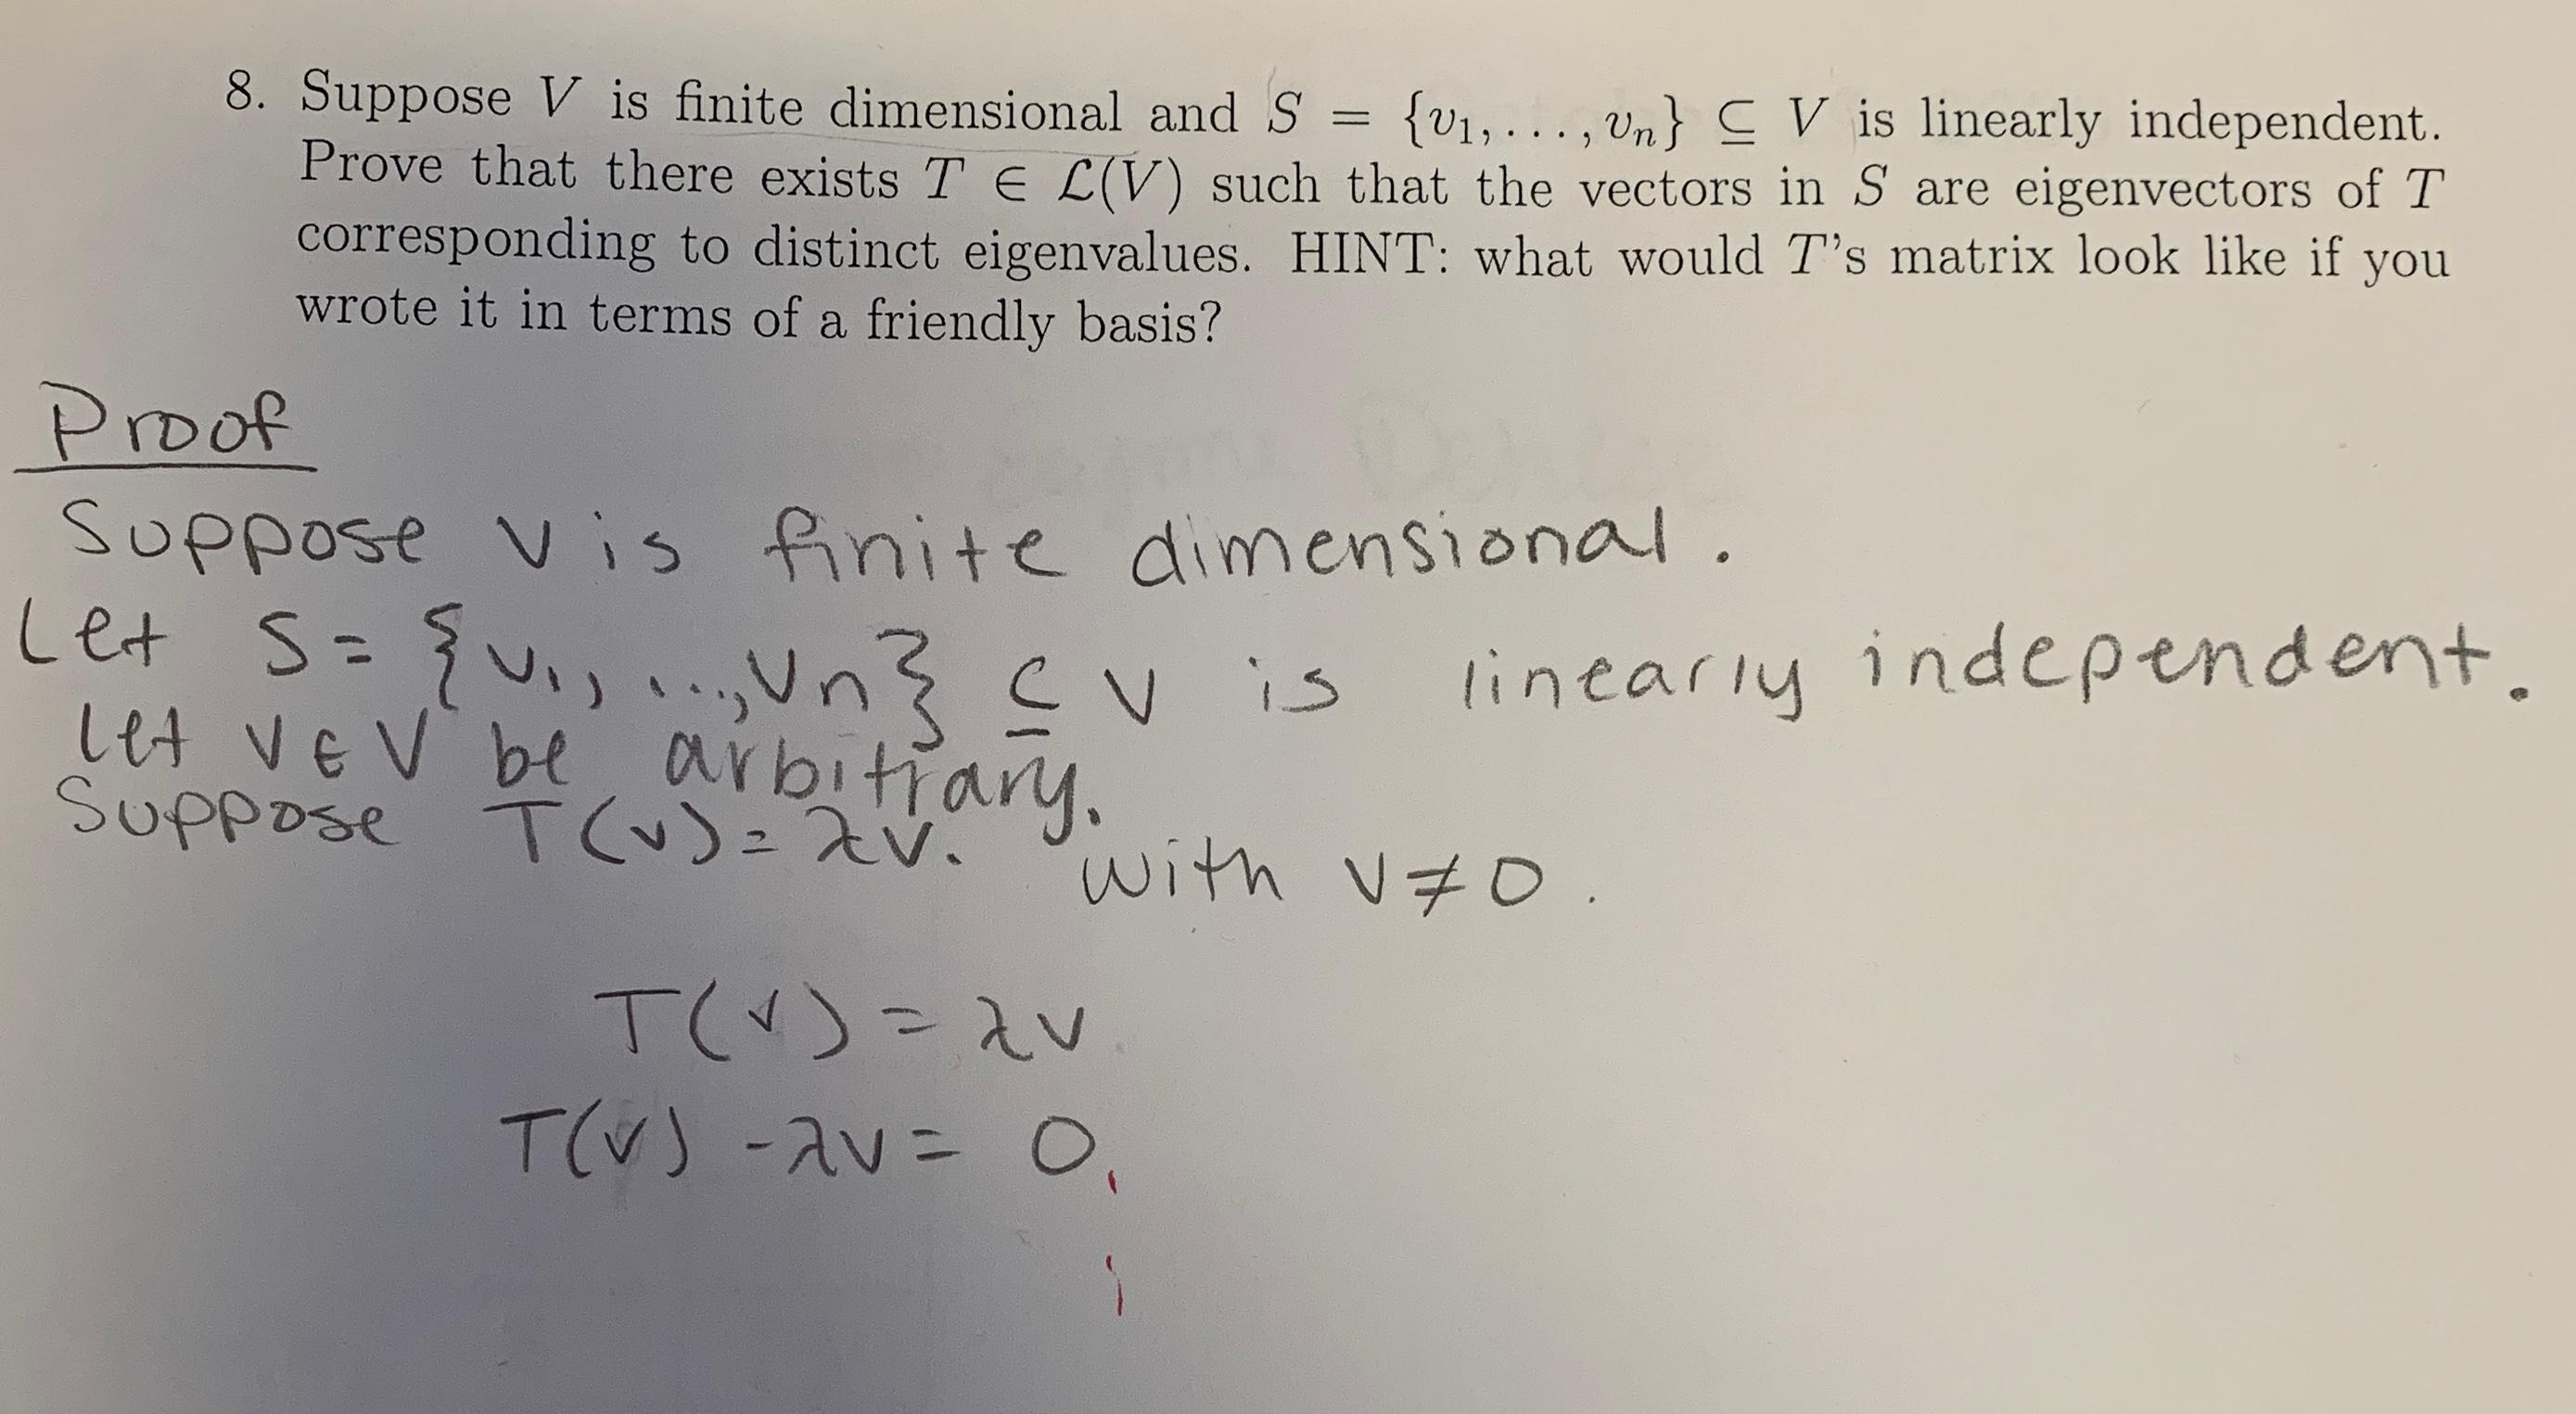 8. Suppose V is finite dimensional and S = {v₁, . . . , vₙ} ⊆ V is linearly independent.
Prove that there exists T ∈ ℒ(V) such that the vectors in S are eigenvectors of T
corresponding to distinct eigenvalues. HINT: what would T's matrix look like if you
wrote it in terms of a friendly basis?
Proof
Suppose V is finite dimensional.
Let S = {v₁, ..., vₙ} ⊆ V is linearly independent.
Let v ∈ V be arbitrary.
Suppose T(v) = λv. with v ≠ 0.
T(v) = λv
T(v) - λv = 0